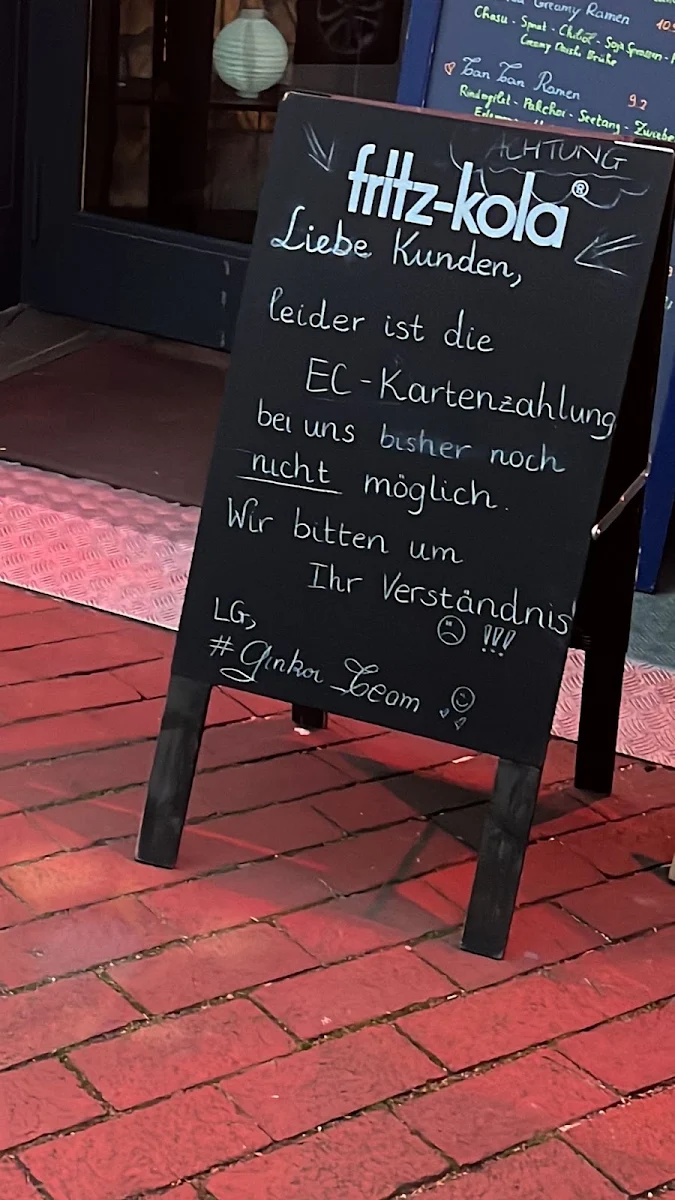 Creamy Ramen
Chasu - Spinat - Chiliöl - Soja Sprossen -
Creamy Dashi Brühe
Tan Tan Ramen 9.2
Rinderfilet - Pakchoi - Seetang -
ACHTUNG
fritz-kola®
Liebe Kunden,
leider ist die
EC-Kartenzahlung
bei uns bisher noch
nicht möglich.
Wir bitten um
Ihr Verständnis
☹ !!!
LG,
#Ginkoi Team ☺